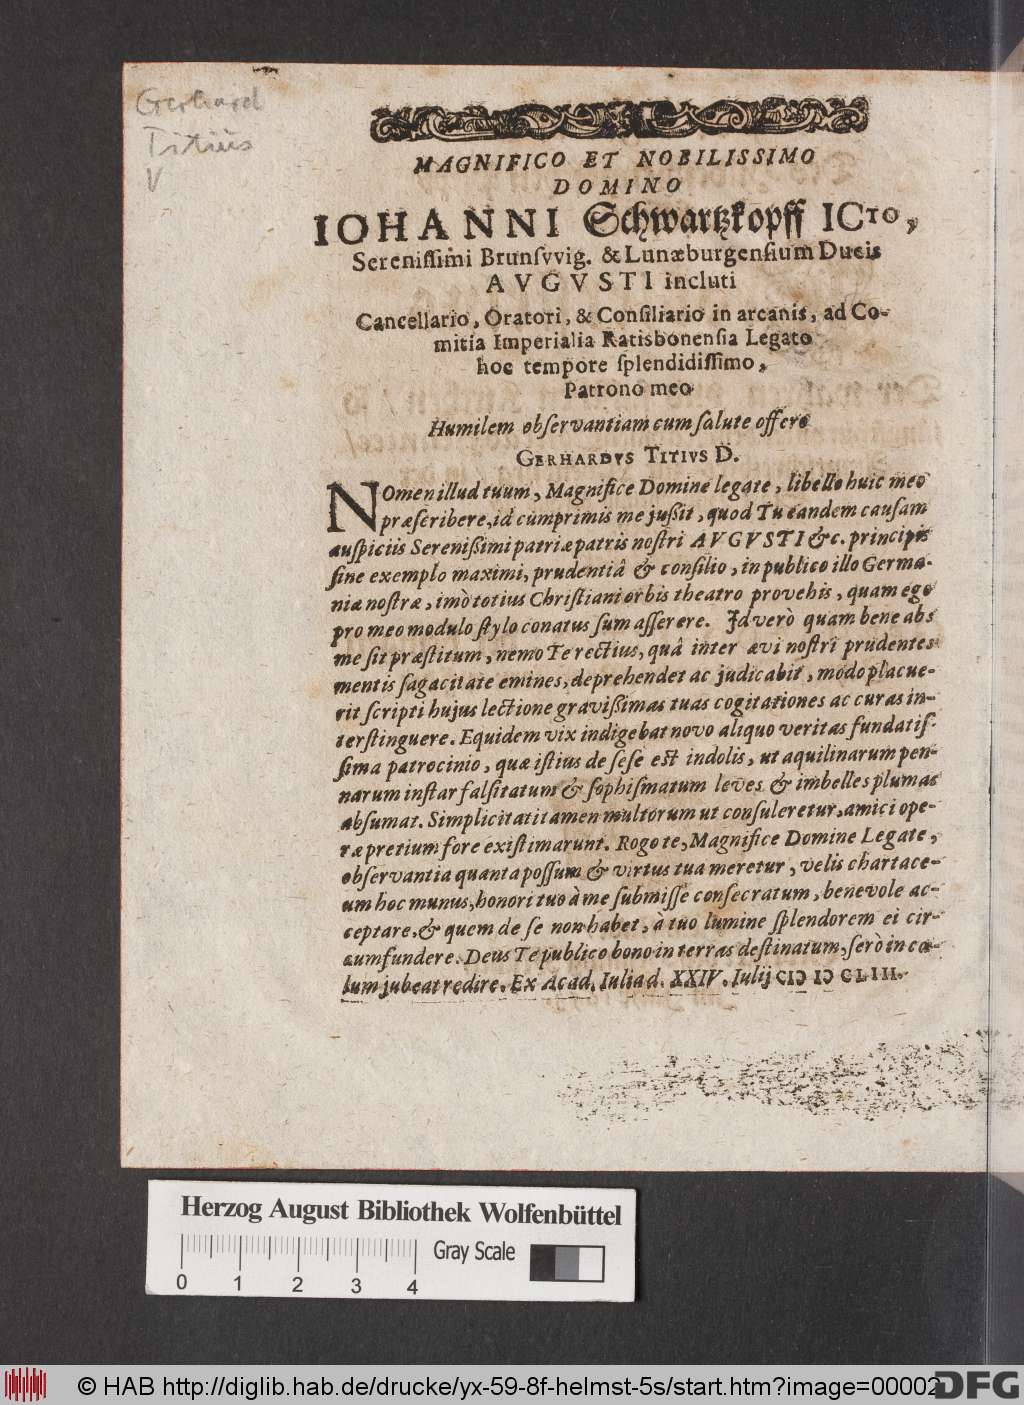 Gerhard
Titius
V
MAGNIFICO ET NOBILISSIMO
DOMINO
IOHANNI Schwartzkopff ICTO,
Sereniſſimi Brunſvvig. & Lunæburgenſium Ducis
AVGVSTI incluti
Cancellario, Oratori, & Conſiliario in arcanis, ad Co-
mitia Imperialia Ratisbonenſia Legato
hoc tempore ſplendidiſſimo,
Patrono meo
Humilem obſervantiam cum ſalute offero
GERHARDVS TITIVS D.
NOmen illud tuum, Magnifice Domine legate, libello huic meo
præſcribere, id cùmprimis me jußit, quod Tu eandem cauſam
auſpiciis Serenißimi patriæ patris noſtri AVGVSTI &c. principis
ſine exemplo maximi, prudentiâ & conſilio, in publico illo Germa-
niæ noſtræ, imò totius Chriſtiani orbis theatro provehis, quam ego
pro meo modulo ſtylo conatus ſum aſſerere. Id verò quam bene abs
me ſit præſtitum, nemo Te rectius, quâ inter ævi noſtri prudentes
mentis ſagacitate emines, deprehendet ac judicabit, modo placue-
rit ſcripti hujus lectione gravißimas tuas cogitationes ac curas in-
terſtinguere. Equidem vix indigebat novo aliquo veritas fundatiſ-
ſima patrocinio, quæ iſtius de ſeſe est indolis, ut aquilinarum pen-
narum inſtar falſitatum & ſophiſmatum leves & imbelles plumas
abſumat. Simplicitati tamen multorum ut conſuleretur, amici ope-
ræ pretium fore exiſtimarunt. Rogo te, Magnifice Domine Legate,
obſervantia quanta poſſum & virtus tua meretur, velis chartace-
um hoc munus, honori tuo à me ſubmiſſè conſecratum, benevole ac-
ceptare, & quem de ſe non habet, à tuo lumine ſplendorem ei cir-
cumfundere. Deus Te publico bono in terras deſtinatum, ſerò in cœ-
lum jubeat redire. Ex Acad. Iulia d. XXIV. Iulij CIↃ IↃ CLIII.
Herzog August Bibliothek Wolfenbüttel
Gray Scale
0 1 2 3 4
© HAB http://diglib.hab.de/drucke/yx-59-8f-helmst-5s/start.htm?image=00002
DFG